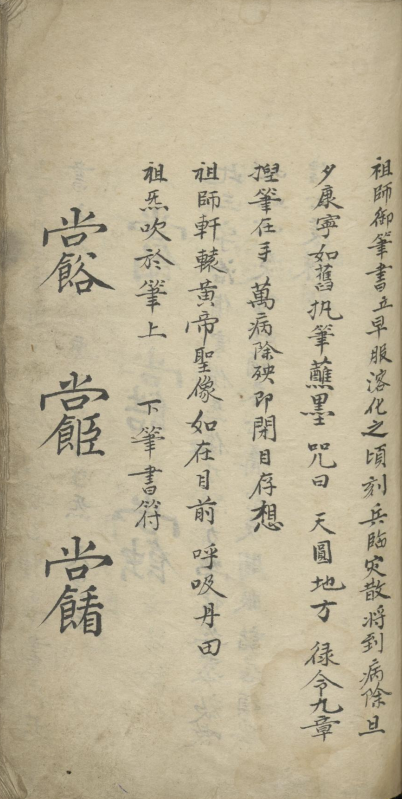 祖師御筆書立早服溶化之頃刻兵臨災散將到病除旦
夕康寧如舊执筆蘸墨咒曰 天圓地方 律令九章
揑筆在手 萬病除殃即閉目存想
祖師軒轅黃帝聖像如在目前 呼吸丹田
祖炁吹於筆上 下筆書符